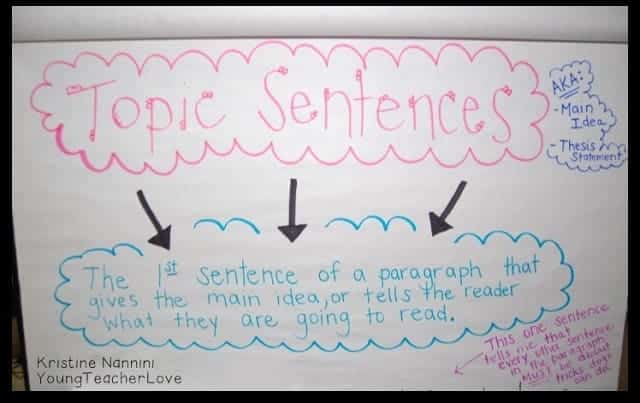 Topic Sentences
AKA:
- Main
Idea
- Thesis
Statement
The 1st sentence of a paragraph that
gives the main idea, or tells the reader
what they are going to read.
This one sentence
tells me that
every other sentence
in the paragraph
MUST be about
tricks dogs
can do.
Kristine Nannini
YoungTeacherLove